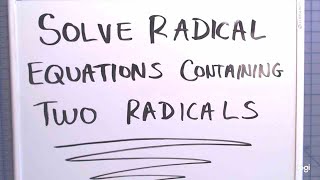 SOLVE RADICAL
EQUATIONS CONTAINING
TWO RADICALS